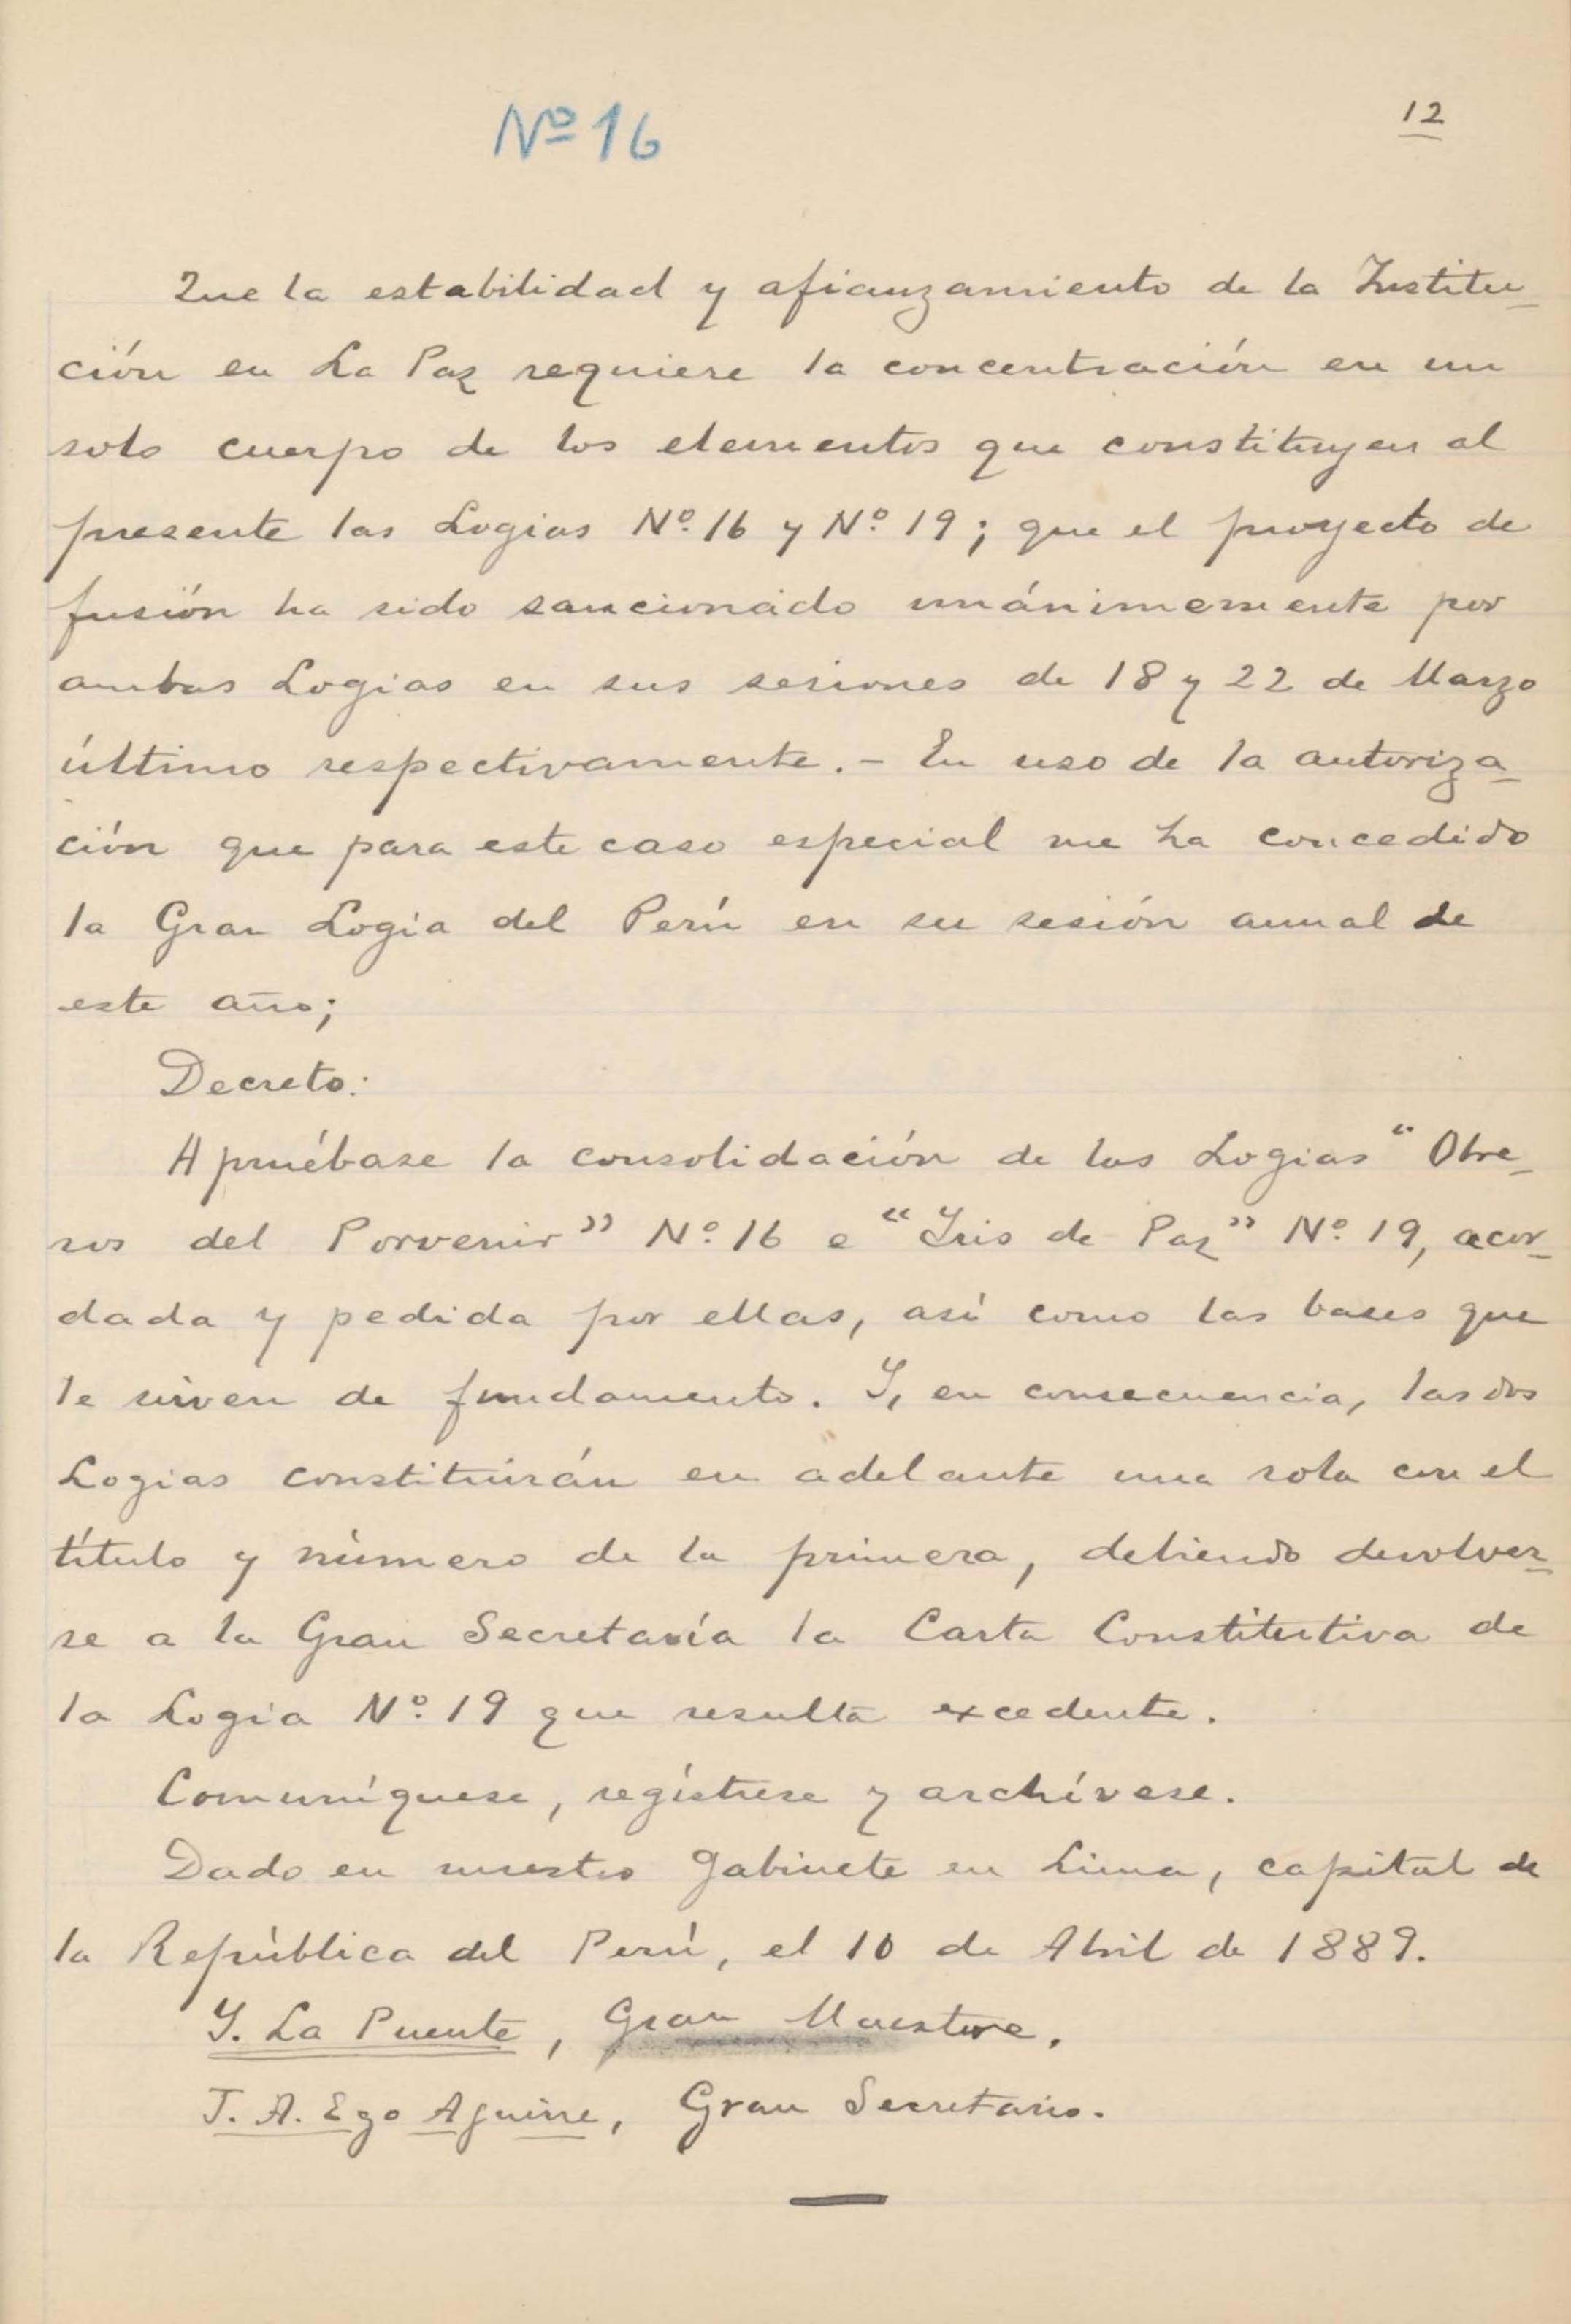 Nº 16
12
Que la estabilidad y afianzamiento de la Institu-
ción en La Paz requiere la concentración en un
solo cuerpo de los elementos que constituyen al
presente las Logias Nº 16 y Nº 19; que el proyecto de
fusión ha sido sancionado unánimemente por
ambas Logias en sus sesiones de 18 y 22 de Marzo
último respectivamente. - En uso de la autoriza-
ción que para este caso especial me ha concedido
la Gran Logia del Perú en su sesión anual de
este año;
Decreto:
Apruébase la consolidación de las Logias "Obre-
ros del Porvenir" Nº 16 e "Iris de Paz" Nº 19, acor-
dada y pedida por ellas, así como las bases que
le sirven de fundamento. Y, en consecuencia, las dos
Logias constituirán en adelante una sola con el
título y número de la primera, debiendo devolver-
se a la Gran Secretaría la Carta Constitutiva de
la Logia Nº 19 que resulta excedente.
Comuníquese, regístrese y archívese.
Dado en nuestro gabinete en Lima, capital de
la República del Perú, el 10 de Abril de 1889.
Y. La Puente, Gran Maestre.
J. A. Ego Aguirre, Gran Secretario.